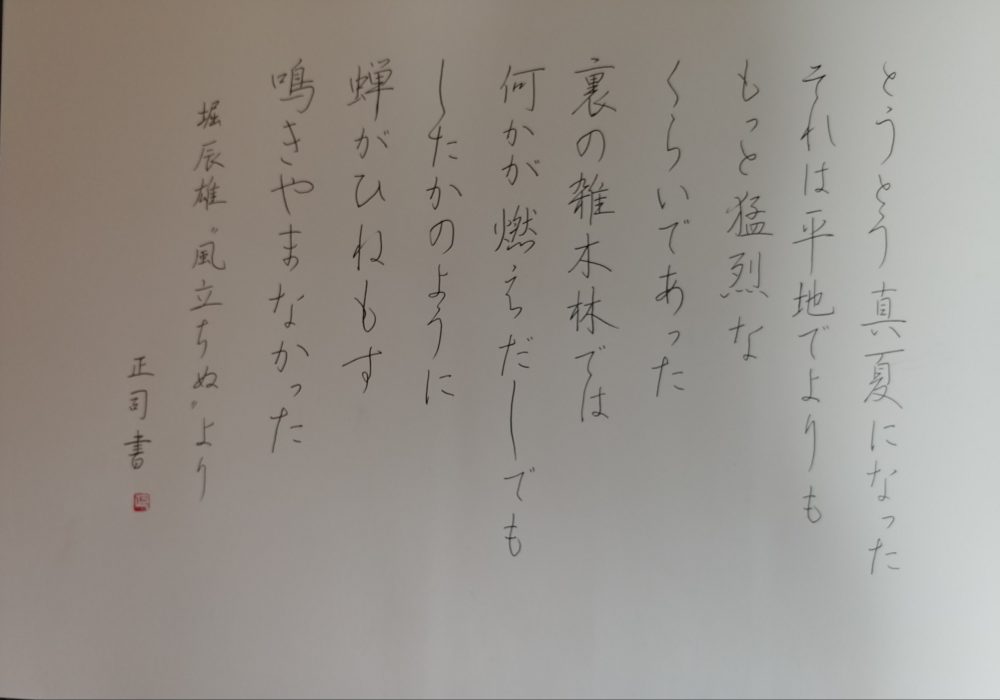 とうとう真夏になった
それは平地でよりも
もっと猛烈な
くらいであった
裏の雑木林では
何かが燃えだしでも
したかのように
蝉がひねもす
鳴きやまなかった
堀辰雄“風立ちぬ”より
正司書